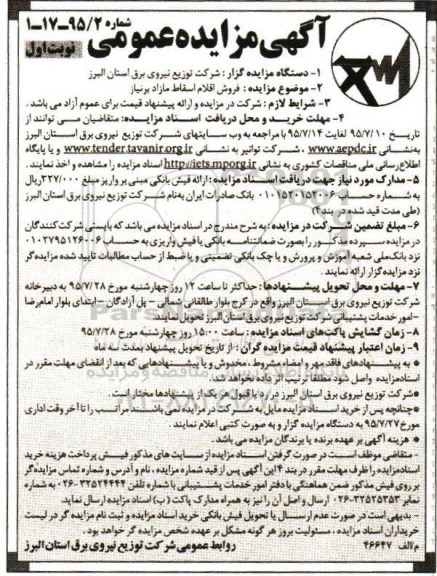 آگهی مزایده عمومی
شماره ۹۵/۲-۱۷-۱
نوبت اول
۱- دستگاه مزایده گزار: شرکت توزیع نیروی برق استان البرز
۲- موضوع مزایده: فروش اقلام اسقاط مازاد برنیاز
۳- شرایط لازم: شرکت در مزایده و ارائه پیشنهاد قیمت برای عموم آزاد می باشد.
۴- مهلت خرید و محل دریافت اسناد مزایده: متقاضیان می توانند از
تاریخ ۹۵/۷/۱۰ لغایت ۹۵/۷/۱۴ با مراجعه به وب سایتهای شرکت توزیع نیروی برق استان البرز
به نشانی www.aepdc.ir ، شرکت توانیر به نشانی www.tender.tavanir.org.ir و یا پایگاه
اطلاع رسانی ملی مناقصات کشوری به نشانی http://iets.mporg.ir اسناد مزایده را مشاهده و اخذ نمایند.
۵- مدارک مورد نیاز جهت دریافت اسناد مزایده: ارائه فیش بانکی مبنی بر واریز مبلغ ۳۲۷/۰۰۰ ریال
به شماره حساب ۰۱۰۱۵۲۰۱۵۲۰۰۶ بانک صادرات ایران به نام شرکت توزیع نیروی برق استان البرز
(طی مدت قید شده در بند ۴)
۶- مبلغ تضمین شرکت در مزایده: به شرح مندرج در اسناد مزایده می باشد که بایستی شرکت کنندگان
در مزایده سپرده مذکور را بصورت ضمانتنامه بانکی یا فیش واریزی به حساب ۰۱۰۲۷۹۵۱۲۶۰۰۶
نزد بانک ملی شعبه آموزش و پرورش و یا چک بانکی تضمینی و یا ضبط از حساب مطالبات تایید شده مزایده گر
نزد مزایده گزار ارائه نمایند.
۷- مهلت و محل تحویل پیشنهادها: حداکثر تا ساعت ۱۲ روز چهارشنبه مورخ ۹۵/۷/۲۸ به دبیرخانه
شرکت توزیع نیروی برق استان البرز واقع در کرج بلوار طالقانی شمالی - پل آزادگان - ابتدای بلوار امام رضا
- امور خدمات پشتیبانی شرکت توزیع نیروی برق استان البرز تحویل نمایند.
۸- زمان گشایش پاکت های اسناد مزایده: ساعت ۱۵:۰۰ روز چهارشنبه مورخ ۹۵/۷/۲۸
۹- زمان اعتبار پیشنهاد قیمت مزایده گران: از تاریخ تحویل پیشنهاد بمدت سه ماه
* به پیشنهادهای فاقد مهر و امضاء، مشروط، مخدوش و یا پیشنهادهایی که بعد از انقضای مهلت مقرر در
اسناد مزایده واصل شود مطلقاً ترتیب اثر داده نخواهد شد.
* شرکت توزیع نیروی برق استان البرز در رد یا قبول هر یک از پیشنهادها مختار است.
* چنانچه پس از خرید اسناد مزایده مایل به شرکت در مزایده نمی باشند مراتب را تا آخر وقت اداری
مورخ ۹۵/۷/۲۷ به دستگاه مزایده گزار و به صورت کتبی اعلام نمایند.
* هزینه آگهی بر عهده برنده یا برندگان مزایده می باشد.
- متقاضی موظف است در صورت گرفتن اسناد مزایده از سایت های مذکور فیش پرداخت هزینه خرید
اسناد مزایده را ظرف مهلت مقرر در بند ۴ این آگهی پس از قید شماره مزایده، نام و آدرس و شماره تماس مزایده گر
بر روی فیش مذکور ضمن هماهنگی با دفتر امور خدمات پشتیبانی با شماره تلفن ۳۲۵۲۴۴۴۴-۰۲۶ به
نمابر ۳۲۵۲۵۳۵۳-۰۲۶ ارسال و اصل آن را نیز به همراه مدارک پاکت (ب) اسناد مزایده ارسال نماید.
- بدیهی است در صورت عدم ارسال یا تحویل فیش بانکی خرید اسناد مزایده و ثبت نام مزایده گر در لیست
خریداران اسناد مزایده، مسئولیت بروز هر گونه مشکل بر عهده شخص مزایده گر خواهد بود.
م/الف ۴۶۶۴۷
روابط عمومی شرکت توزیع نیروی برق استان البرز